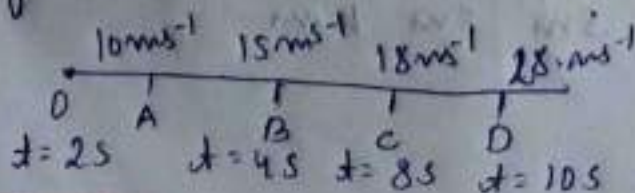 10ms⁻¹ 15ms⁻¹ 18ms⁻¹ 28 ms⁻¹
O A B C D
t = 2s t = 4s t = 8s t = 10s